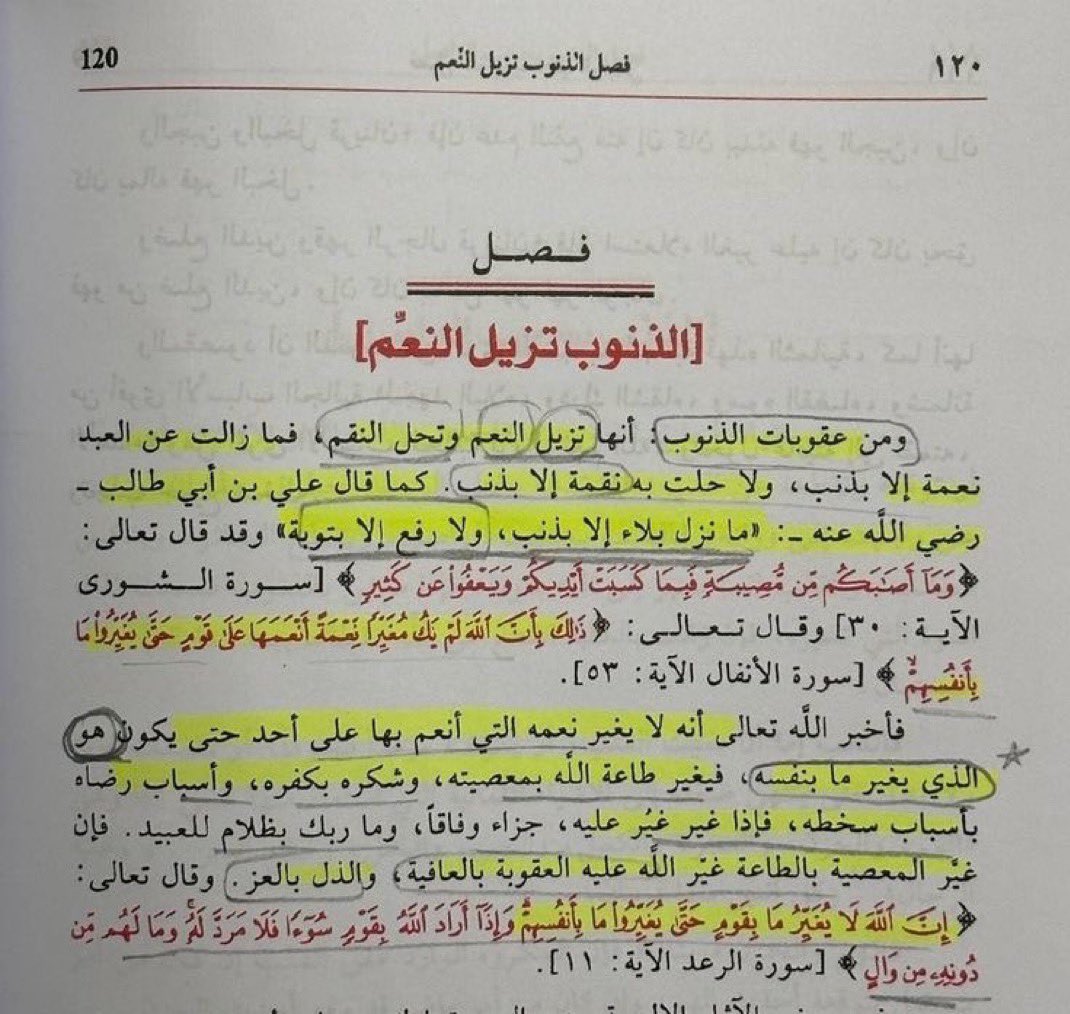 120 فصل الذنوب تزيل النّعم ١٢٠
فـصـل
[الذنوب تزيل النعّم]
ومن عقوبات الذنوب: أنها تزيل النعم وتحل النقم، فما زالت عن العبد
نعمة إلا بذنب، ولا حلت به نقمة إلا بذنب. كما قال علي بن أبي طالب ـ
رضي اللَّه عنه ـ: «ما نزل بلاء إلا بذنب، ولا رفع إلا بتوبة» وقد قال تعالى:
﴿وَمَآ أَصَـٰبَكُم مِّن مُّصِيبَةٍ فَبِمَا كَسَبَتْ أَيْدِيكُمْ وَيَعْفُواْ عَن كَثِيرٍ﴾ [سـورة الـشـورى
الآيـة: ٣٠] وقـال تـعـالـى: ﴿ذَٰلِكَ بِأَنَّ ٱللَّهَ لَمْ يَكُ مُغَيِّرًا نِّعْمَةً أَنْعَمَهَا عَلَىٰ قَوْمٍ حَتَّىٰ يُغَيِّرُواْ مَا
بِأَنفُسِهِمْۙ﴾ [سورة الأنفال الآية: ٥٣].
فأخبر اللَّه تعالى أنه لا يغير نعمه التي أنعم بها على أحد حتى يكون هو
الذي يغير ما بنفسه، فيغير طاعة اللَّه بمعصيته، وشكره بكفره، وأسباب رضاه
بأسباب سخطه، فإذا غير غيُر عليه، جزاء وفاقاً، وما ربك بظلام للعبيد. فإن
غيَّر المعصية بالطاعة غيّر اللَّه عليه العقوبة بالعافية، والذل بالعز. وقال تعالى:
﴿إِنَّ ٱللَّهَ لَا يُغَيِّرُ مَا بِقَوْمٍ حَتَّىٰ يُغَيِّرُواْ مَا بِأَنفُسِهِمْۗ وَإِذَآ أَرَادَ ٱللَّهُ بِقَوْمٍ سُوٓءًا فَلَا مَرَدَّ لَهُۥۚ وَمَا لَهُم مِّن
دُونِهِۦ مِن وَالٍ﴾ [سورة الرعد الآية: ١١].